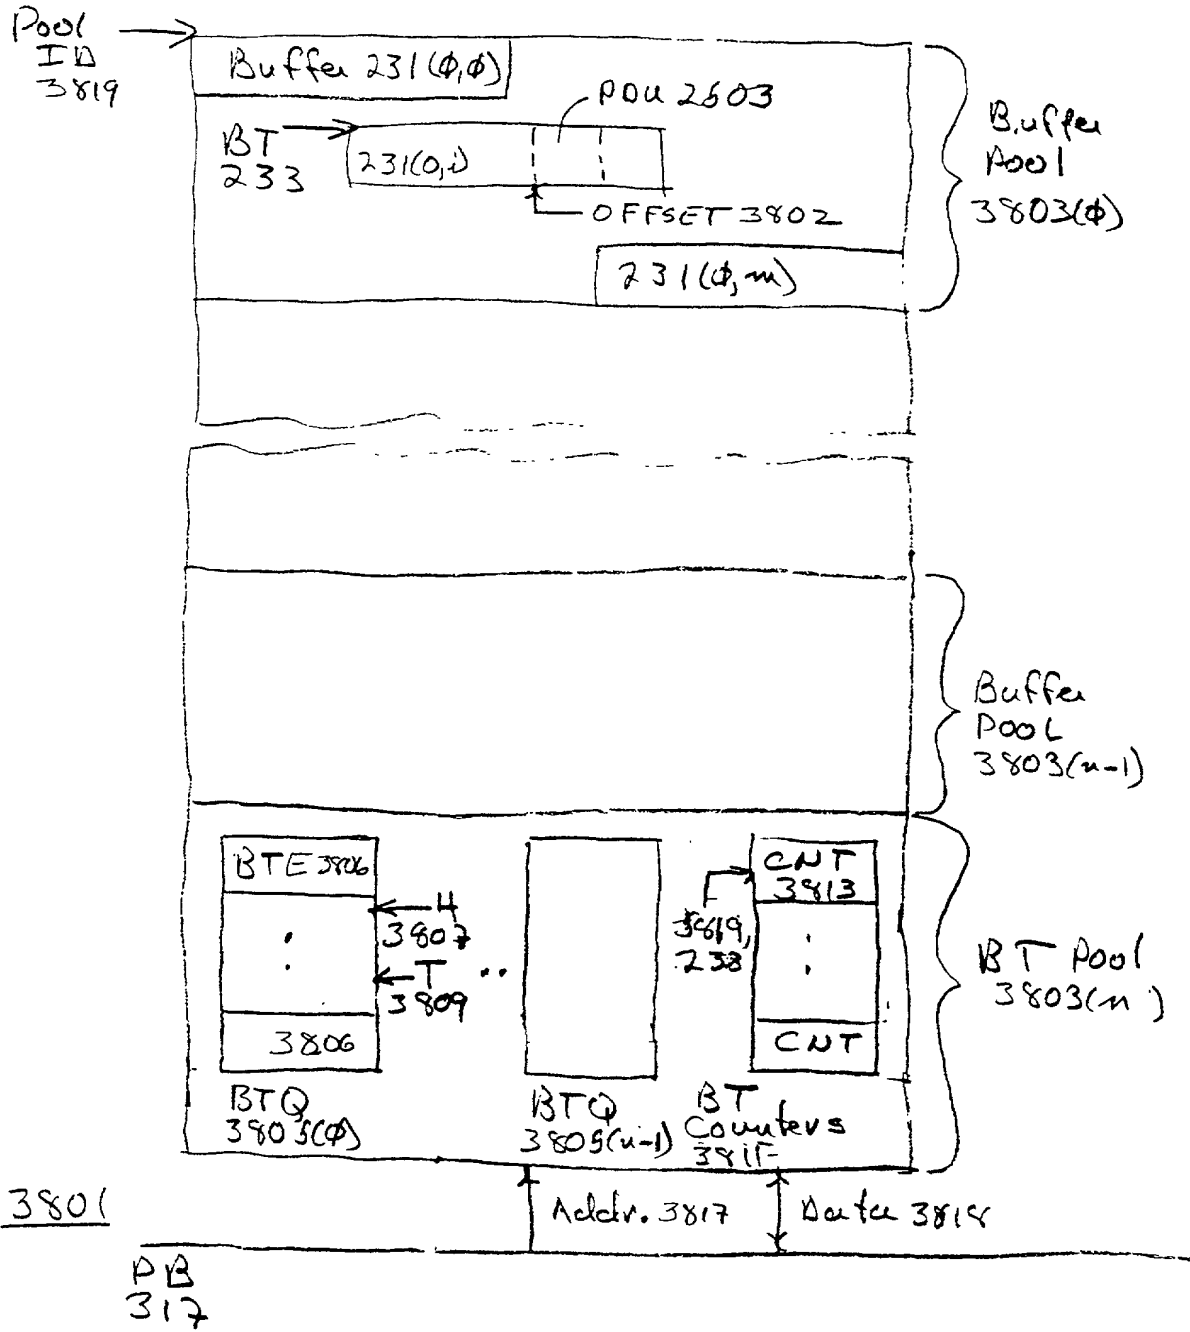 Pool
ID
3819
Buffer 231(φ,φ)
PDU 2603
BT
233
231(0,i)
OFFSET 3802
231(φ,m)
Buffer
Pool
3803(φ)
Buffer
POOL
3803(n-1)
BTE 3806
H
3807
T
3809
3806
BTQ
3805(φ)
..
BTQ
3805(n-1)
3819,
238
CNT
3813
CNT
BT
Counters
3811
BT Pool
3803(n)
3801
Addr. 3817
Data 3818
PB
317